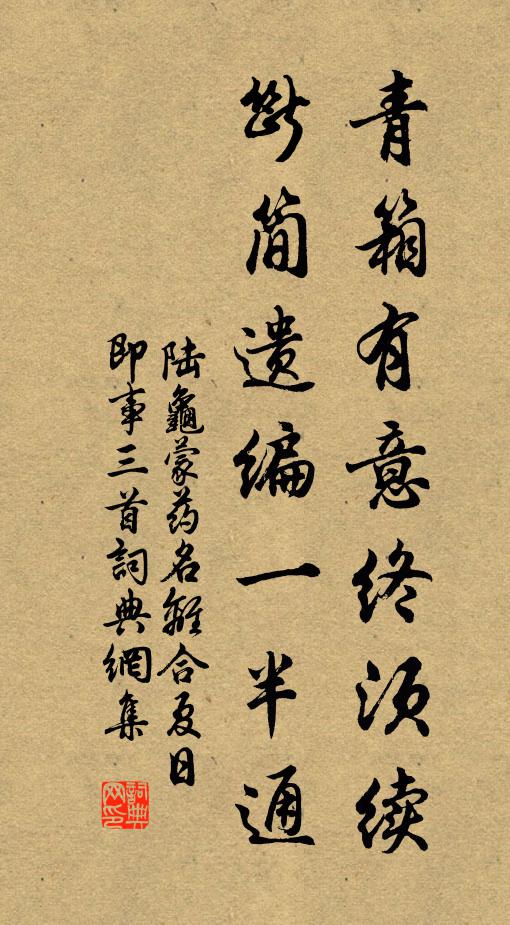 青箱有意终须续
断简遗编一半通
陆龜蒙药名離合夏日
即事三首詞典網集
詞典网印